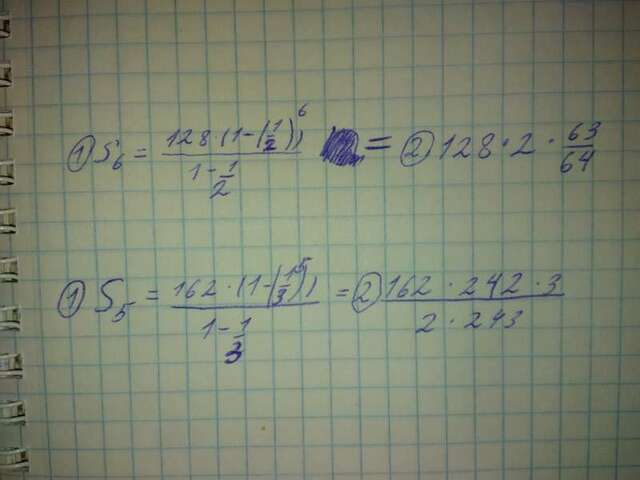 ① S₆ = 128(1-(1/2))⁶ / 1-1/2 = ② 128·2·63/64
① S₅ = 162·(1-(1/3)⁵) / 1-1/3 = ② 162·242·3 / 2·243